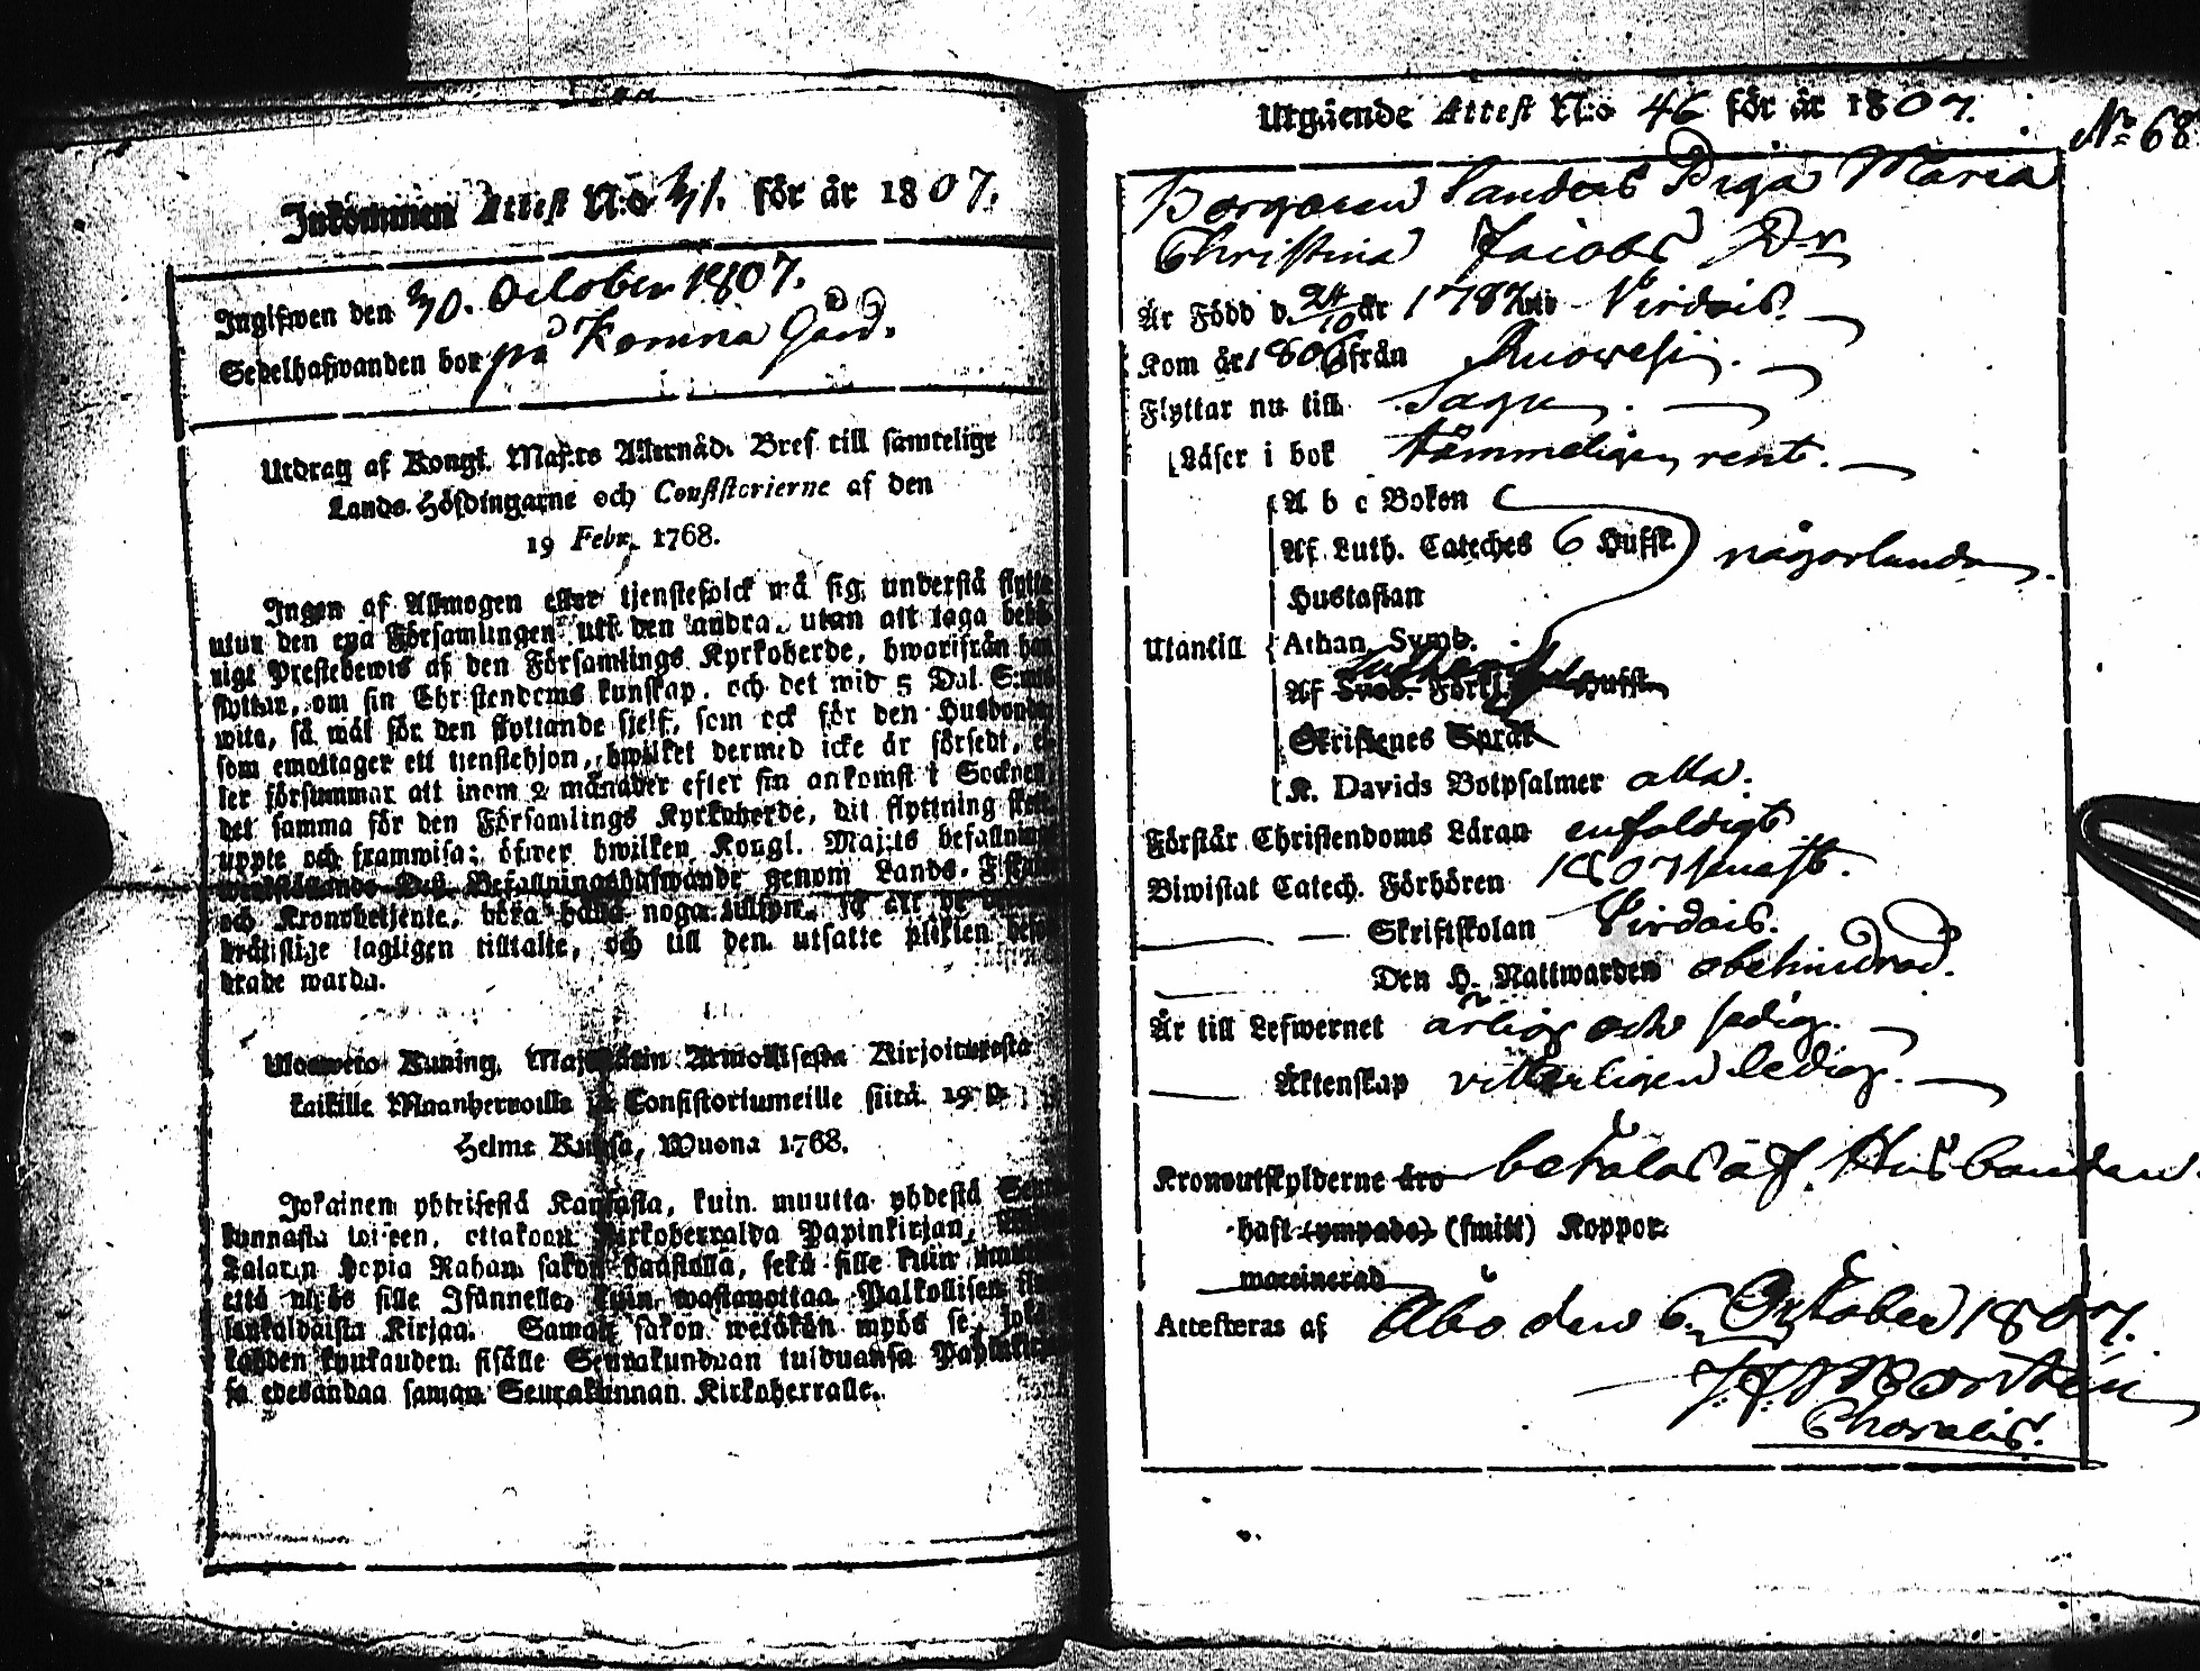 Inkommen Attest N:o 71. för år 1807.
Ingifwen den 30. October 1807.
Sedelhafwanden bor på Komna Gård.
Utdrag af Kongl. Maj:ts Allernåd. Bref till samtelige
Lands-Höfdingarne och Consistorierne af den
19 Febr. 1768.
Ingen af Allmogen eller tjenstefolck må sig understå flytta
utur den ena Församlingen uti den andra, utan att taga
nigt Prestebewis af den Församlings Kyrkoherde, hwarifrån han
flyttar, om sin Christendoms kunskap, och det wid 5 Dal. S:mts
wite, så wäl för den flyttande sjelf, som ock för den Husbonde
som emottager ett tjenstehjon, hwilket dermed icke är försedt, el-
ler försummar att inom 2 månader efter sin ankomst i Socknen,
det samma för den Församlings Kyrkoherde, dit flyttning sker,
uppte och framwisa; öfwer hwilken Kongl. Maj:ts befallning
Befallningshafwande genom Lands-Fiskaler
och Kronobetjente, böra hålla noga tillsyn, så att de
lagligen tilltalte, och till den utsatte plikten befor-
drade warda.
Ulosweto Kuning. Majestätin Armollisesta Kirjoituxesta
kaikille Maanherroille ja Consistoriumeille siitä 19 p.
Helme Kuusa, Wuona 1768.
Jokainen yhteisestä Kansasta, kuin muutta yhdestä Seura-
kunnasta toiseen, ottakoon Kirkoherralda Papinkirjan,
Talarin Hopia Rahan sakon haastolla, sekä sille kuin muutta
että myös sille Isännelle, kuin wastanottaa Palkollisen
laista Kirjaa. Saman sakon wetäkön myös se, joka
kahden kuukauden sisälle Seurakundaan tulduansa Papinkirjan-
sa edesandaa saman Seurakunnan Kirkoherralle.
Utgående Attest N:o 46 för år 1807.
N:o 68
Borgaren Sanders Piga Maria
Christina Jacobs Dr
Är Född d. 24/10 år 1787 uti Virdois.
Kom år 1806 ifrån Ruowesi.
Flyttar nu till Sagu.
Läser i bok tämmeligen rent.
Utantill
A b c Boken
Af Luth. Cateches 6 Hufst. någorlunda.
Hustaflan
Athan. Symb.
Af Sveb. Förkl. Hufst.
Skriftenes Språk
K. Davids Botpsalmer alla.
Förstår Christendoms Läran enfaldigt
Biwistat Catech. Förhören 1807 senast.
Skriftskolan Virdois.
Den H. Nattwarden obehindrad.
Är till Lefwernet ärlig och sedig.
Äktenskap vitterligen ledig.
Kronoutskylderne äro betalas af Husbonden.
haft (ympade) (smitt) Koppor
waccinerad
Attesteras af Åbo den 6. October 1807.